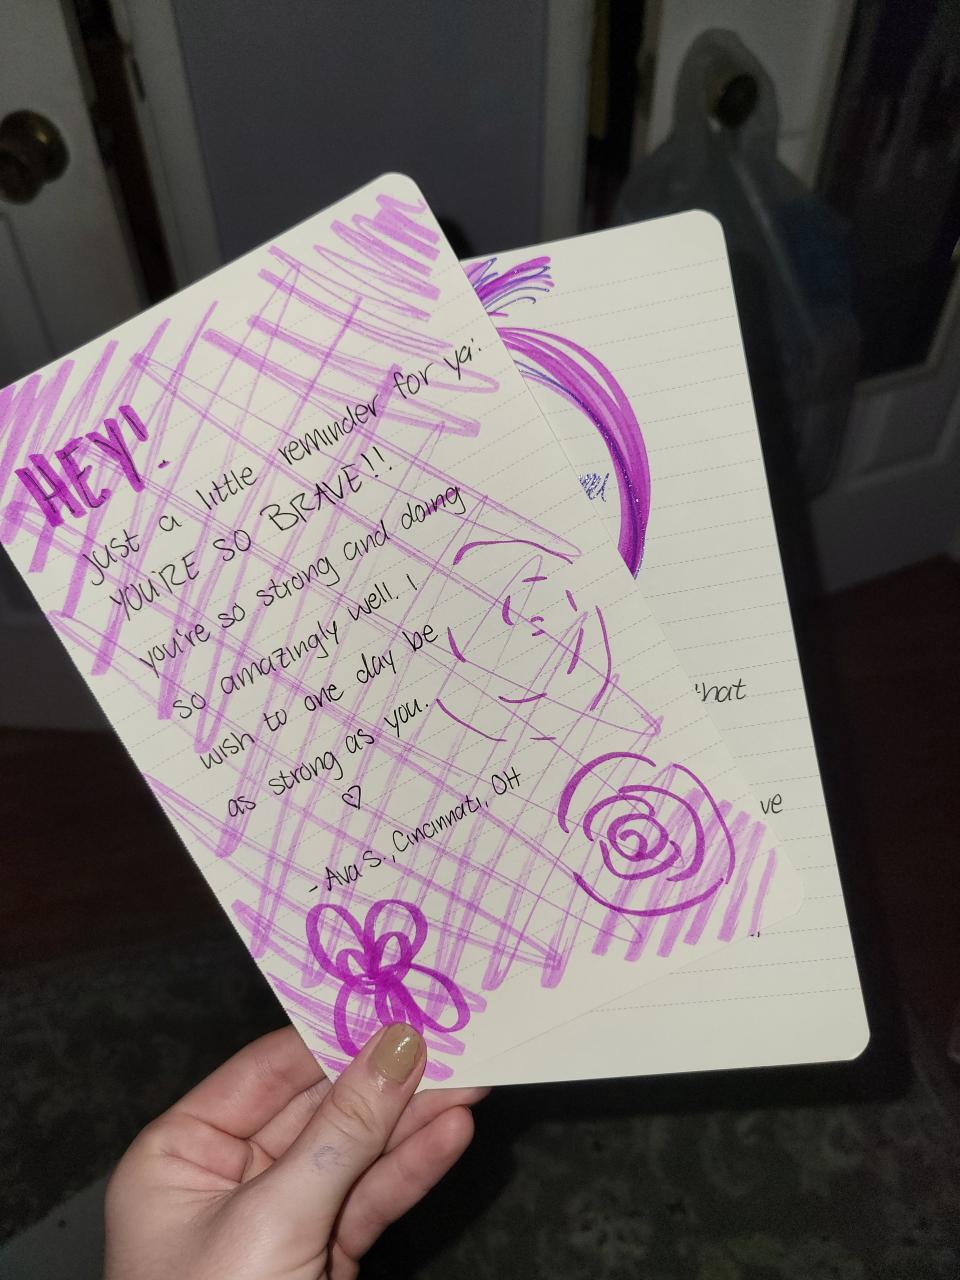 HEY!
just a little reminder for ya:
YOU'RE SO BRAVE!!
you're so strong and doing
so amazingly well. I
wish to one day be
as strong as you.
♡
- Ava S., Cincinnati, OH
hat
ve